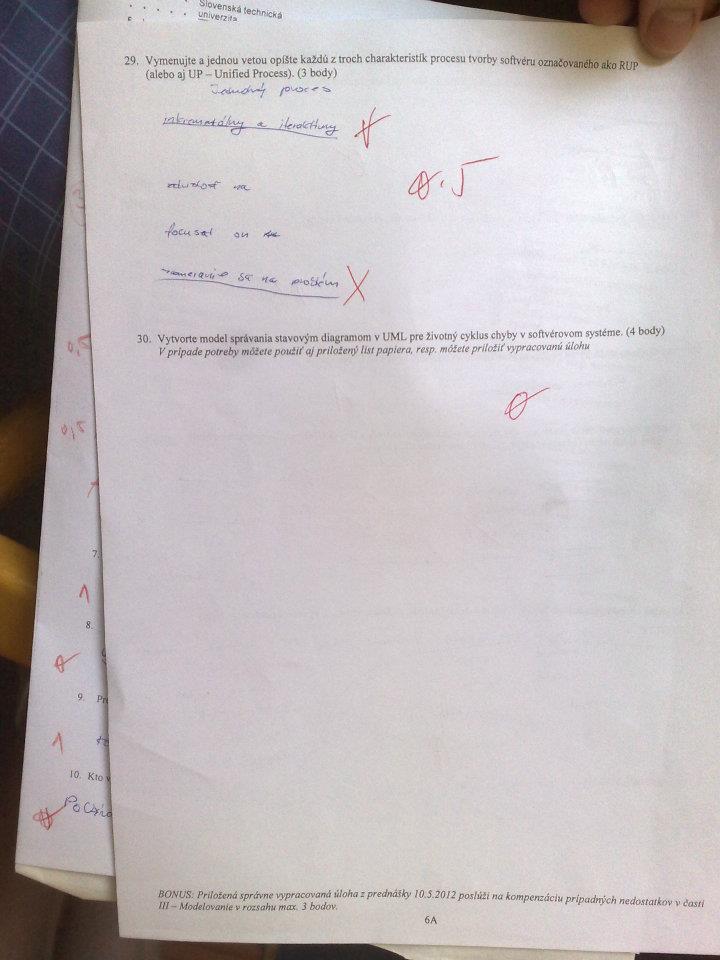 Slovenská technická
univerzita
29. Vymenujte a jednou vetou opíšte každú z troch charakteristík procesu tvorby softvéru označovaného ako RUP
(alebo aj UP – Unified Process). (3 body)
Jednotný proces
inkrementálny a iteratívny
0.5
na
focused on
sa na problém
X
30. Vytvorte model správania stavovým diagramom v UML pre životný cyklus chyby v softvérovom systéme. (4 body)
V prípade potreby môžete použiť aj priložený list papiera, resp. môžete priložiť vypracovanú úlohu
0
0,5
0,5
1
7.
1
8.
0
9. Pr
1
10. Kto v
BONUS: Priložená správne vypracovaná úloha z prednášky 10.5.2012 poslúži na kompenzáciu prípadných nedostatkov v časti
III – Modelovanie v rozsahu max. 3 bodov.
6A